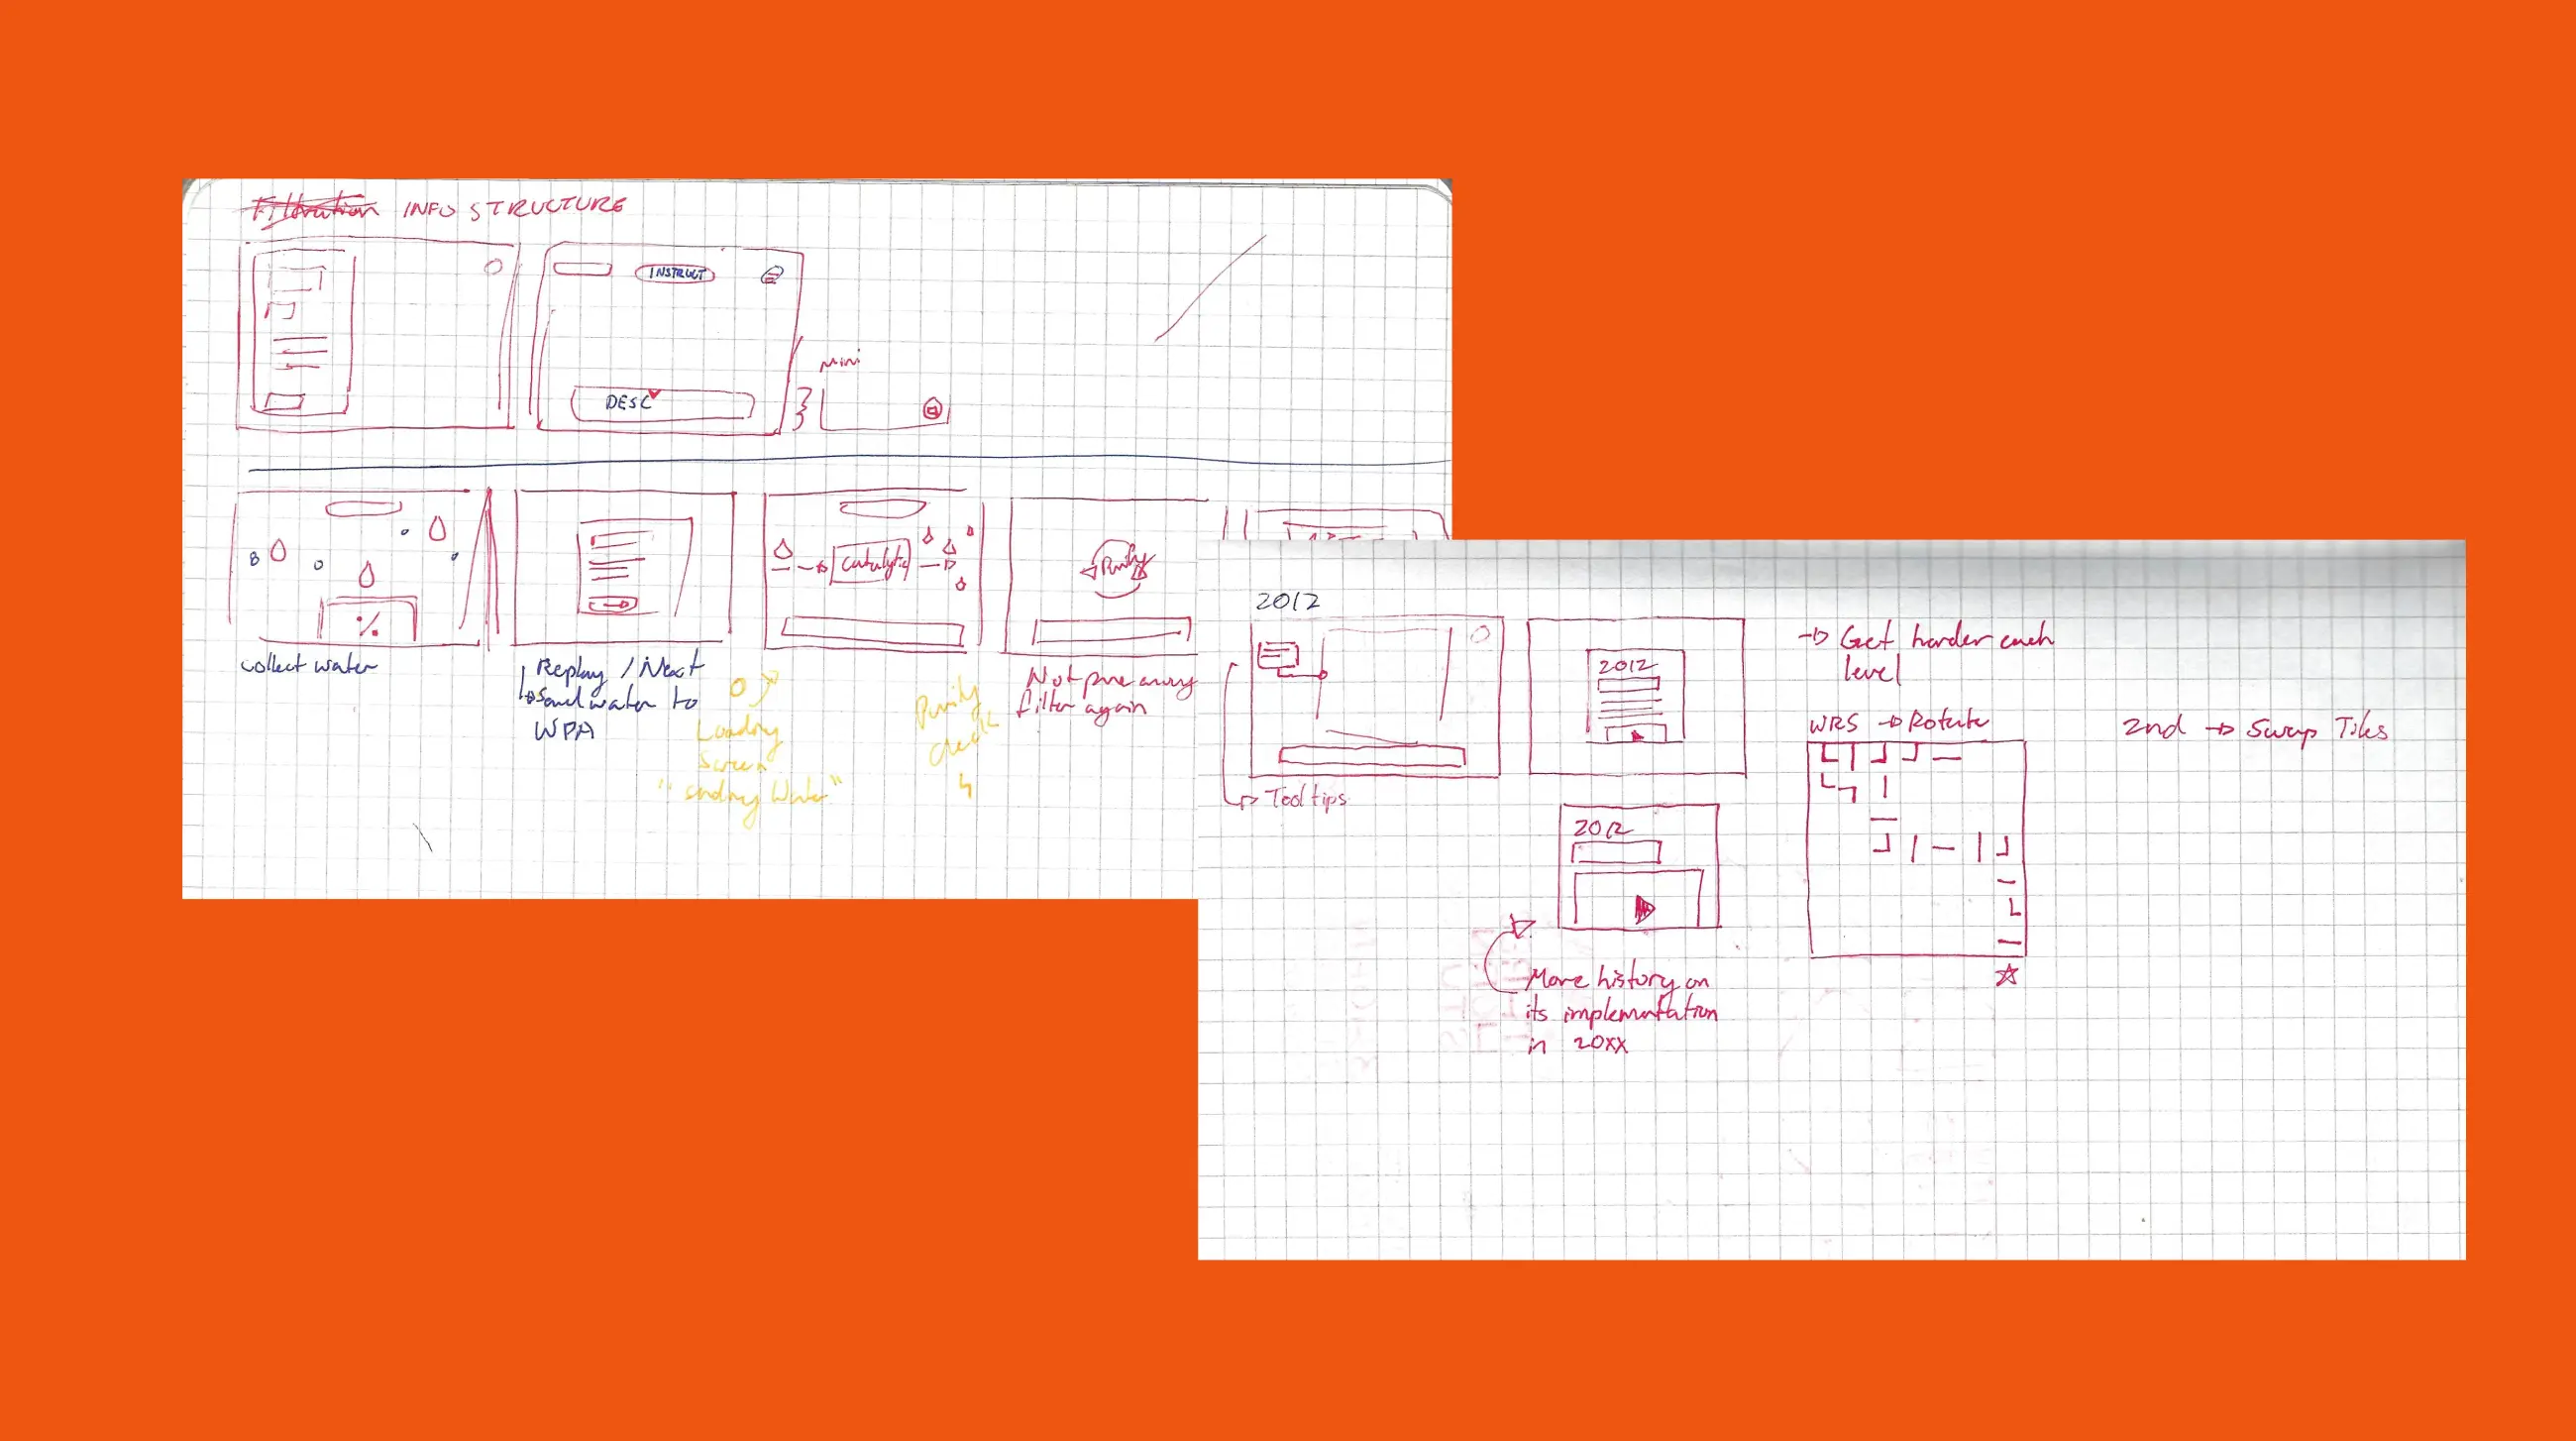 Filtration INFO STRUCTURE
INSTRUCT
DESC
Mini
%
collect water
Replay / Next
Send water to
WPA
Catalytic
Loading
Screen
"sending Water"
Purity
Purity
check
Not pure
filter again
2012
Tooltips
2012
2012
More history on
its implementation
in 20XX
→ Get harder each
level
WRS → Rotate
2nd → Swap Tiles